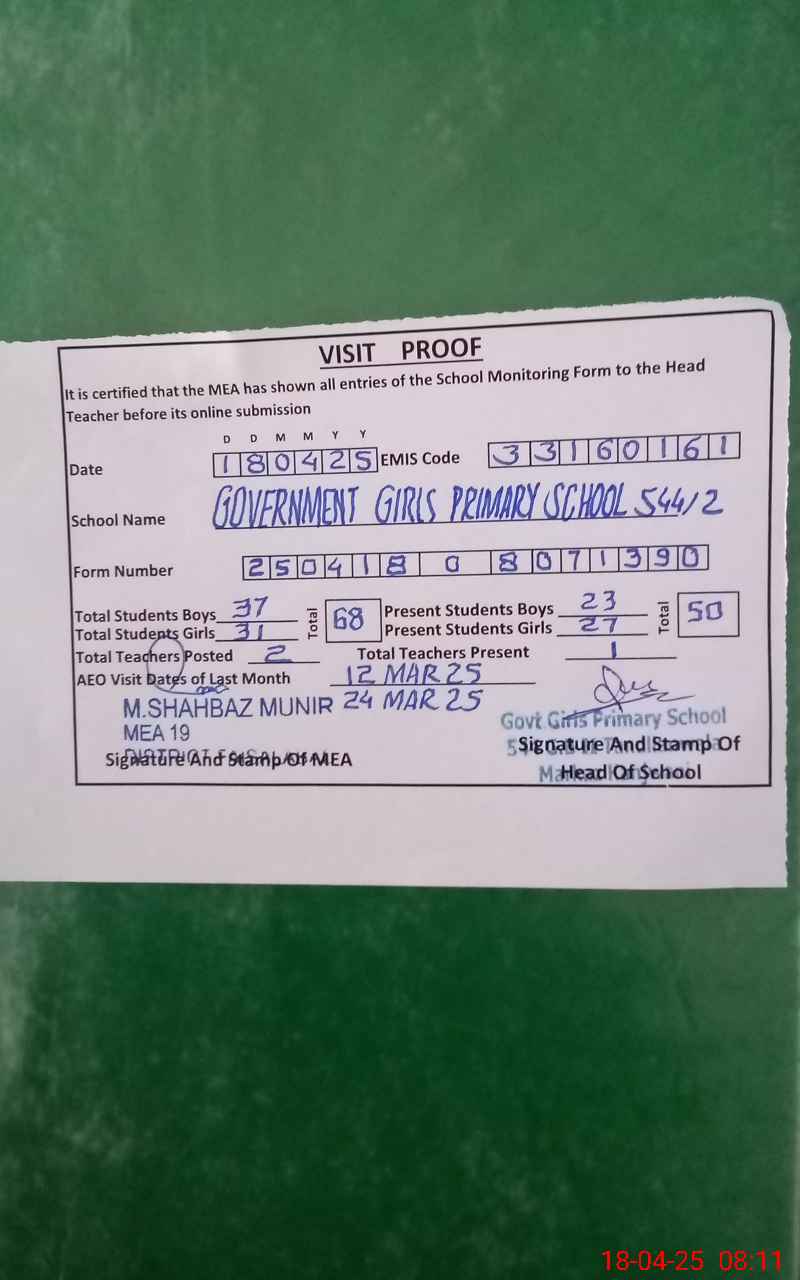 VISIT PROOF
It is certified that the MEA has shown all entries of the School Monitoring Form to the Head
Teacher before its online submission
D D M M Y Y
Date 180425 EMIS Code 33160161
School Name GOVERNMENT GIRLS PRIMARY SCHOOL 544/2
Form Number 250418 0 8071390
Total Students Boys 37 Total 68 Present Students Boys 23 Total 50
Total Students Girls 31 Present Students Girls 27
Total Teachers Posted 2 Total Teachers Present 1
AEO Visit Dates of Last Month 12 MAR 25
24 MAR 25
M.SHAHBAZ MUNIR
MEA 19
DISTRICT
Signature And Stamp Of MEA
Govt Girls Primary School
Signature And Stamp Of
Head Of School
18-04-25 08:11